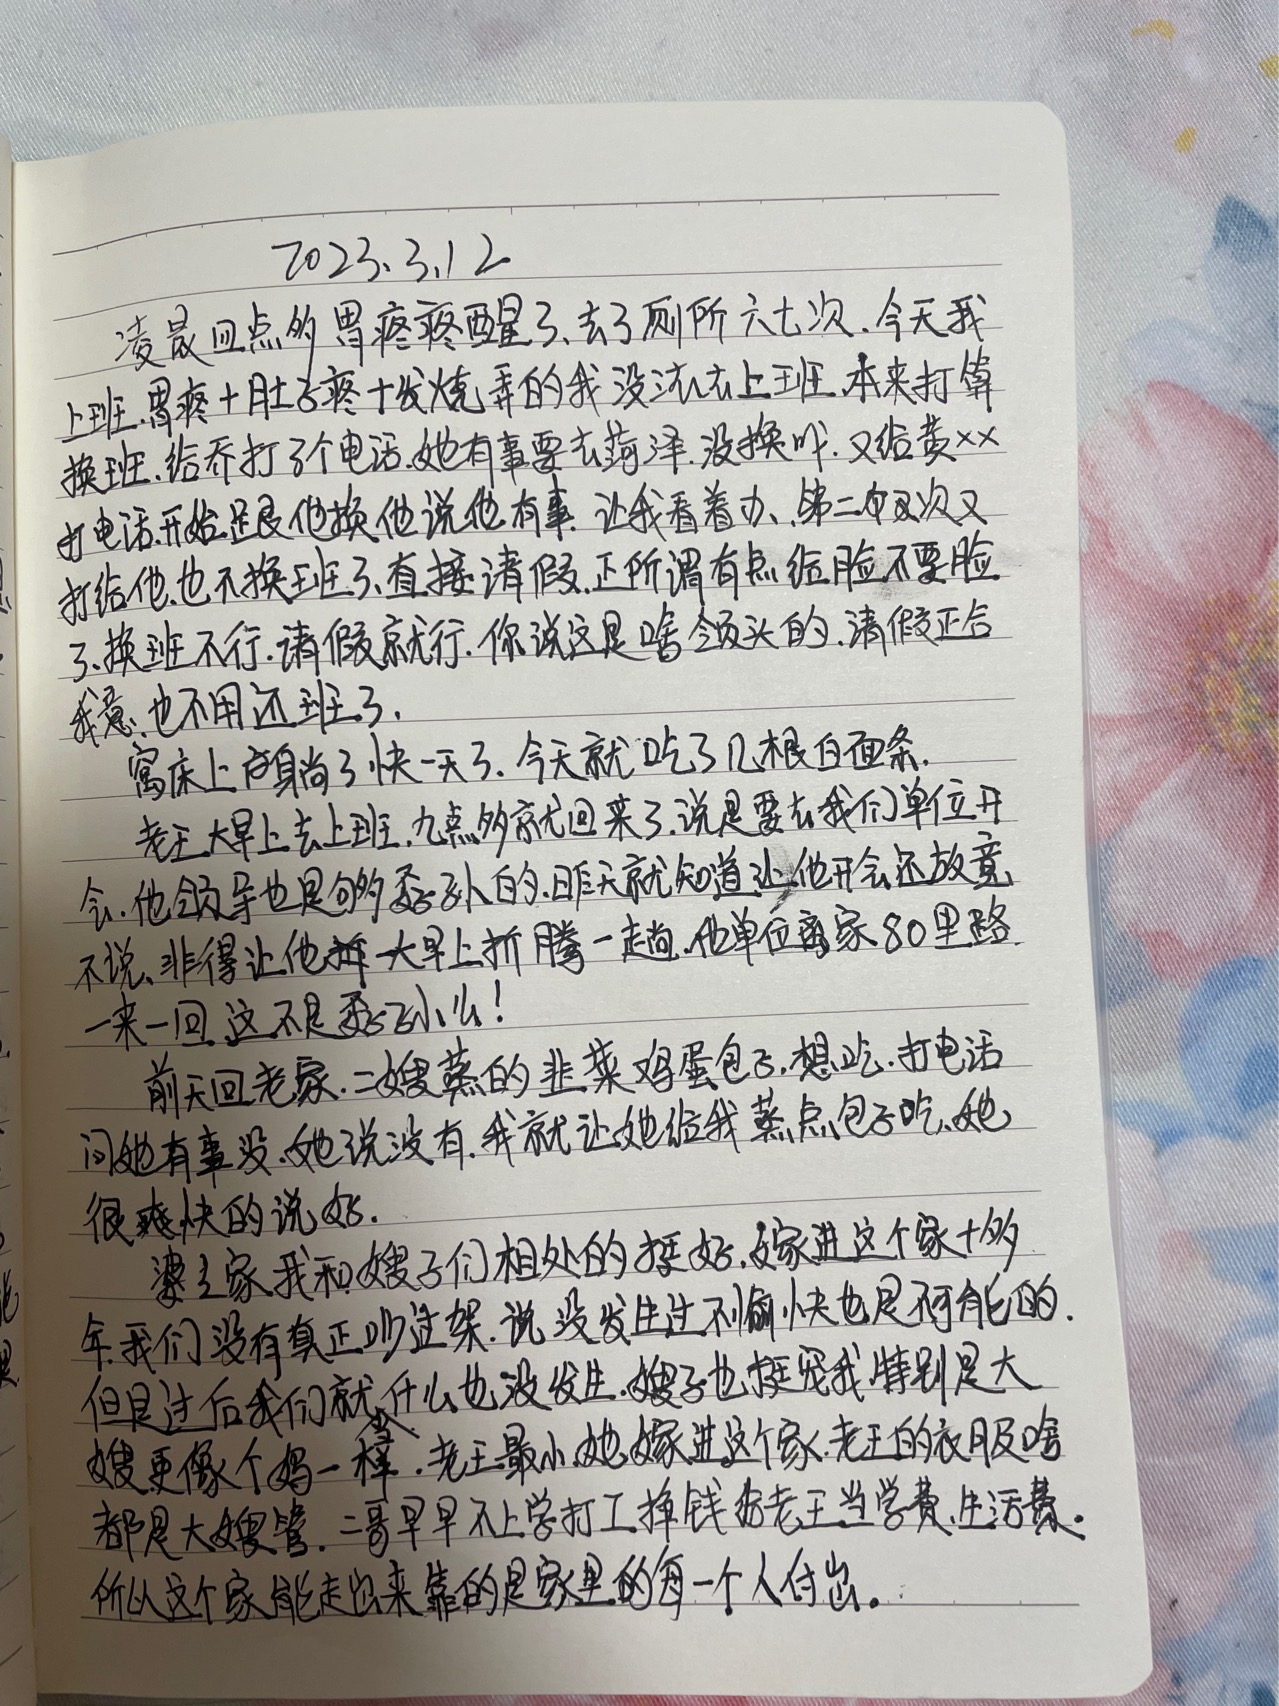 2023.3.12
凌晨四点多胃疼疼醒了、去了厕所六七次.今天我
上班.胃疼+肚子疼+发烧弄的我没法去上班.本来打算
换班.给乔打了个电话.她有事要去菏泽.没换成.又给黄××
打电话.开始是跟他换他说他有事.让我看着办、第二次又
打给他.也不换班了.直接请假.正所谓有点给脸不要脸
了.换班不行.请假就行.你说这是啥领头的.请假正合
我意.也不用还班了.
窝床上躺了快一天了.今天就吃了几根白面条.
老王大早上去上班.九点多就回来了.说是要去我们单位开
会.他领导也是够孬孙的.昨天就知道让他开会还故意
不说、非得让他大早上折腾一趟.他单位离家80里路.
一来一回这不是孬孙么!
前天回老家.二嫂蒸的韭菜鸡蛋包子.想吃.打电话
问她有事没.她说没有.我就让她给我蒸点包子吃.她
很爽快的说好.
婆家我和嫂子们相处的挺好.嫁进这个家十多
年.我们没有真正吵过架.说没发生过不愉快也是不可能的.
但是过后我们就当什么也没发生.嫂子也挺宠我.特别是大
嫂更像个妈一样.老王最小.她嫁进这个家.老王的衣服啥
都是大嫂管.二哥早早不上学打工挣钱给老王当学费.生活费.
所以这个家能走出来靠的是家里的每一个人付出.